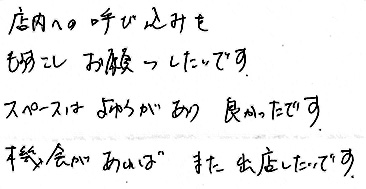 店内への呼び込みを
もう少し お願いしたいです
スペースは よゆうがあり 良かったです。
機会があれば また出店したいです。